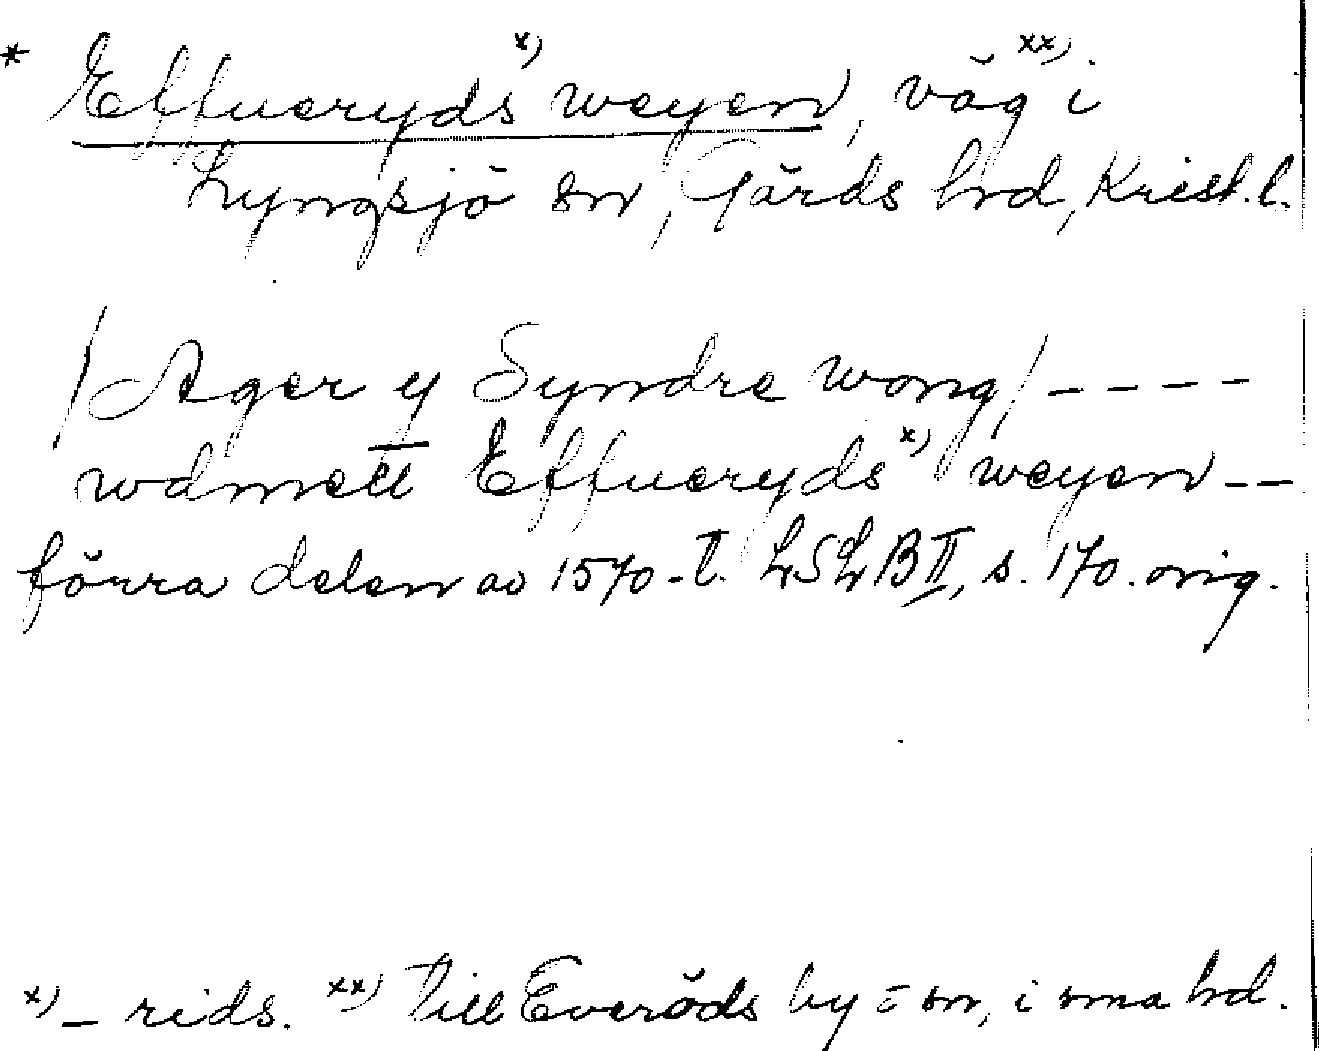 * Effueryds x) weyen, väg xx) i
Lyngsjö sn, Gärds hd, Krist. l.
/Ager y Syndre wong/ ----
wdmett Effueryds x) weyen --
förra delen av 1570-t. LSLB II, s. 170. orig.
x) – rids. xx) Till Everöds by o sn, i sma hd.